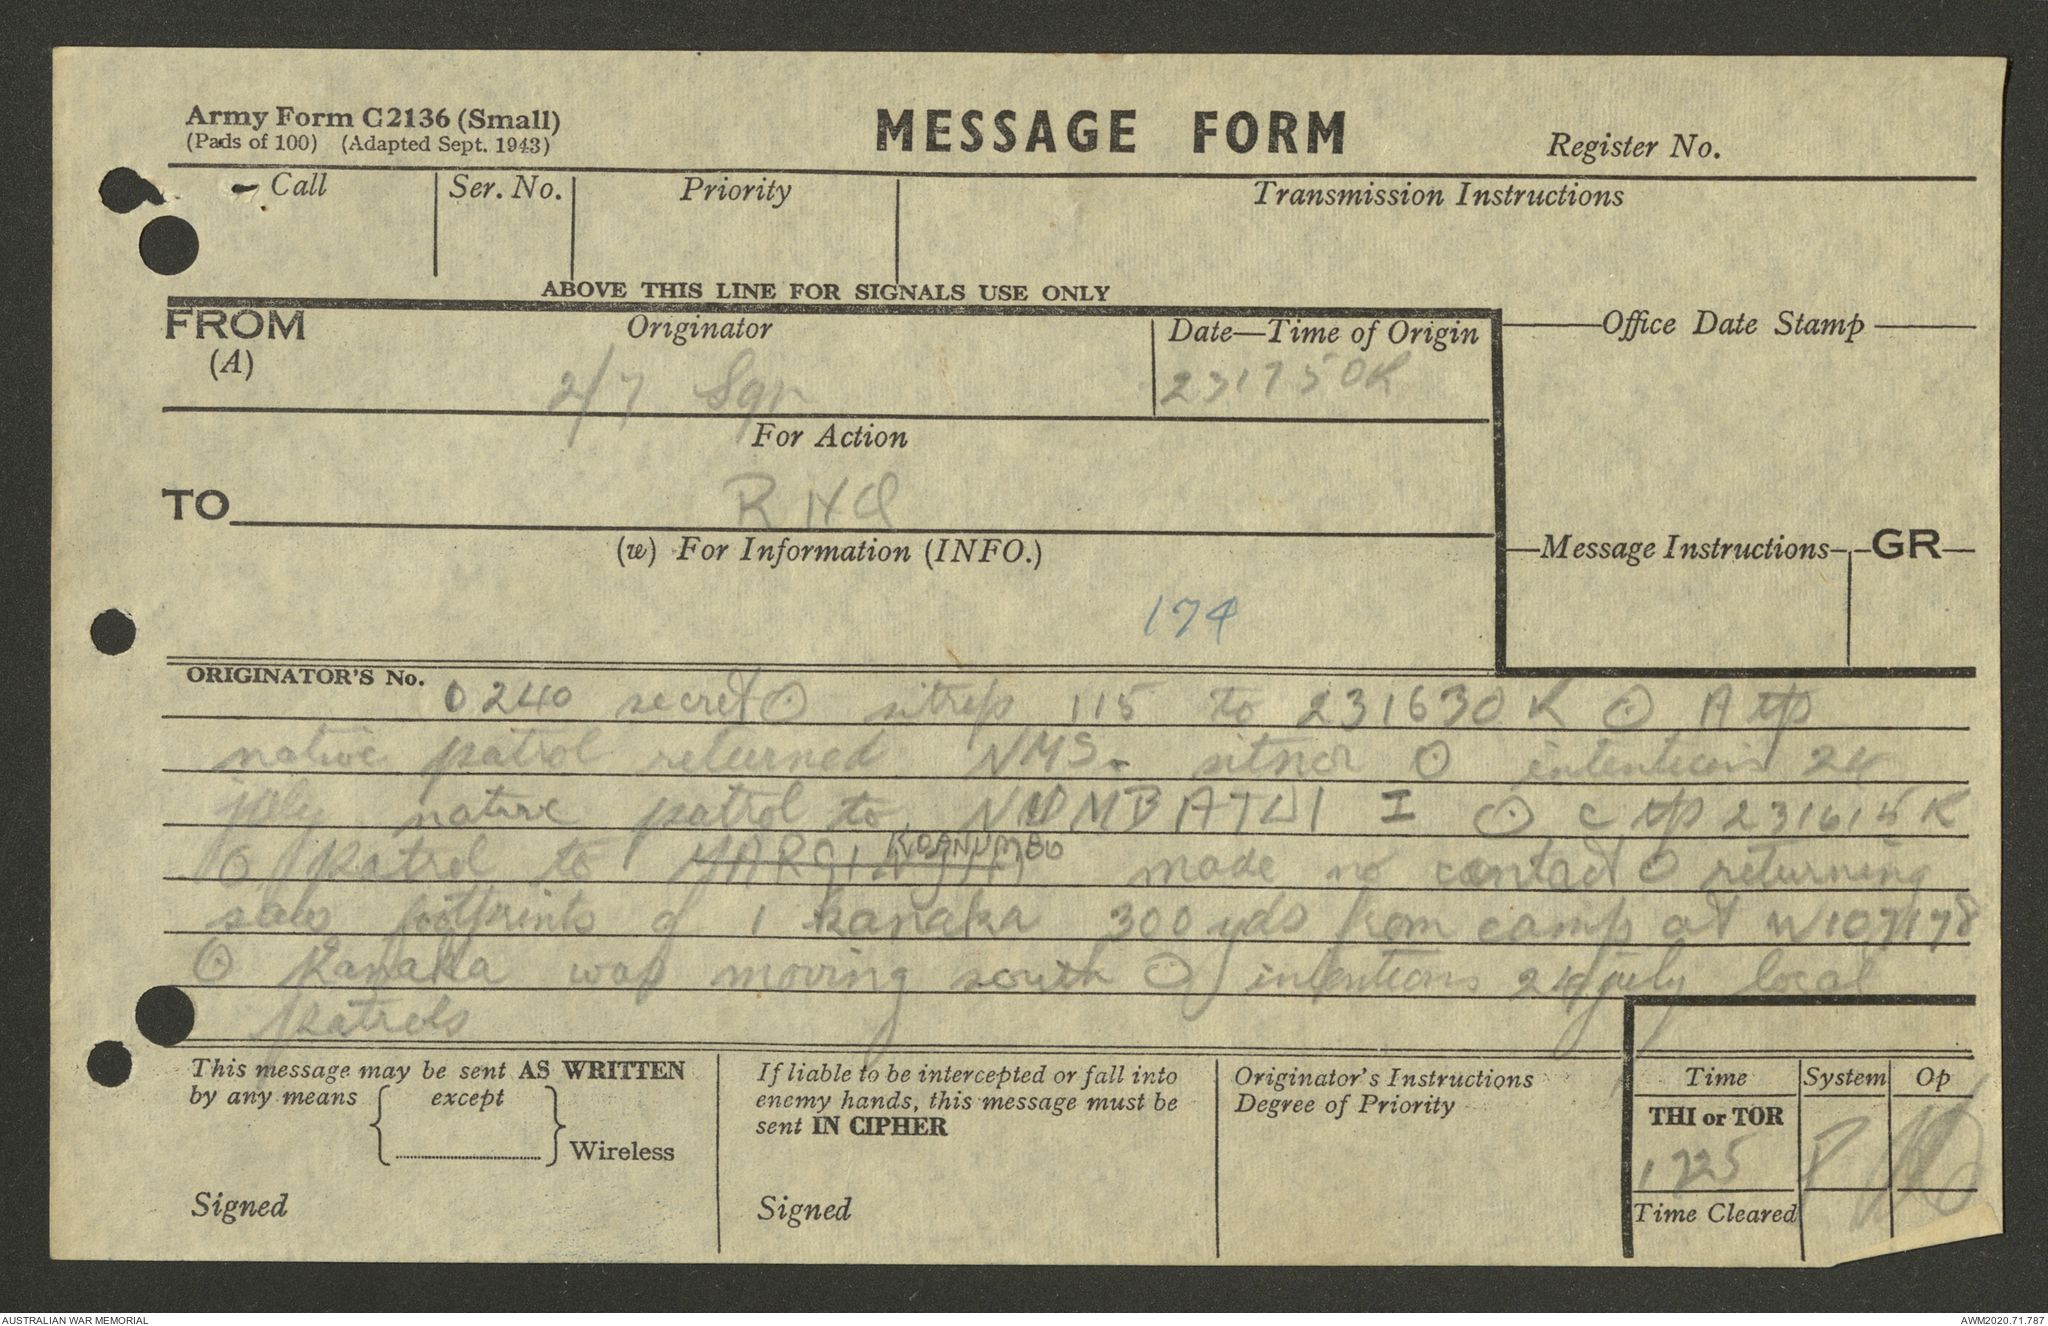 Army Form C2136 (Small)
(Pads of 100) (Adapted Sept. 1943)
MESSAGE FORM
Register No.
Call
Ser. No.
Priority
Transmission Instructions
ABOVE THIS LINE FOR SIGNALS USE ONLY
FROM
(A)
Originator
2/7 Sqn
Date—Time of Origin
231750K
Office Date Stamp
For Action
TO
R H Q
(w) For Information (INFO.)
Message Instructions
GR
174
ORIGINATOR'S No.
0240 secret ⊙ sitrep 115 to 231630 K ⊙ A tp
native patrol returned NMS. sitnor ⊙ intentions 24
july native patrol to NUMBATUI I ⊙ C tp 231615K
KOANUMBO
⊙ patrol to made no contact ⊙ returning
saw footprints of 1 kanaka 300 yds from camp at W107178
⊙ Kanaka was moving south ⊙ intentions 24 july local
patrols
This message may be sent AS WRITTEN
by any means except
Wireless
Signed
If liable to be intercepted or fall into
enemy hands, this message must be
sent IN CIPHER
Signed
Originator's Instructions
Degree of Priority
Time
System
Op
THI or TOR
1725
P
Time Cleared
AUSTRALIAN WAR MEMORIAL
AWM2020.71.787